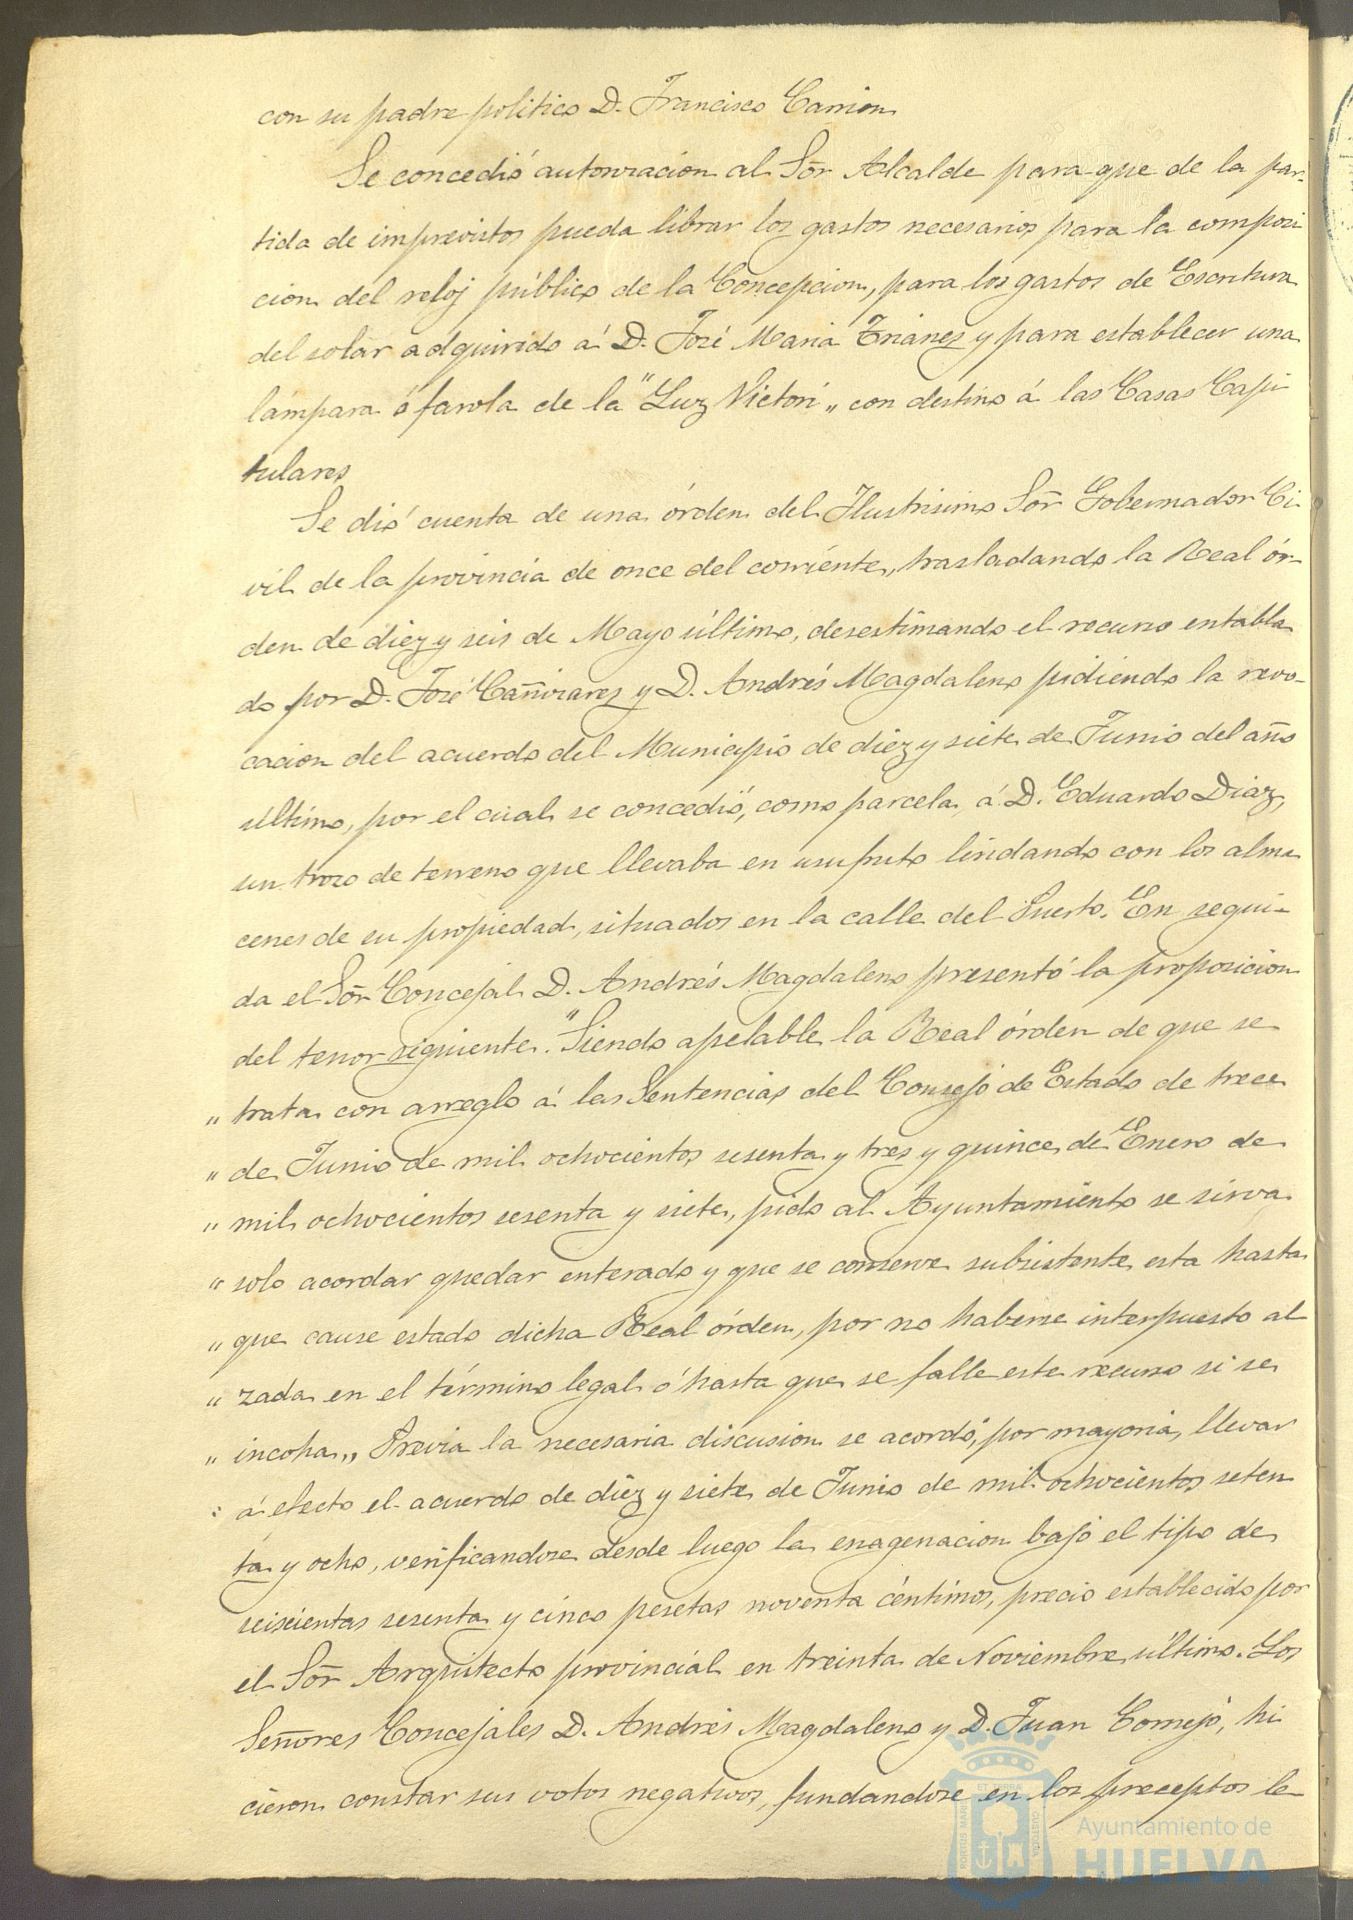 con su padre politico D. Francisco Carrion.
Se concedió autorizacion al Sor̃ Alcalde para que de la par-
tida de imprevistos pueda librar los gastos necesarios para la composi
cion del reloj público de la Concepcion, para los gastos de Escritura
del solar adquirido á D. José Maria Trianez y para establecer una
lámpara ó farola de la "Luz Victori" con destino á las Casas Capi
tulares
Se dió cuenta de una órden del Ilustrisimo Sor̃ Gobernador Ci-
vil de la provincia de once del corriente, trasladando la Real ór-
den de diez y seis de Mayo último, desestimando el recurso entabla
do por D. José Cañizarez y D. Andrés Magdaleno pidiendo la revo-
cacion del acuerdo del Municipio de diez y siete de Junio del año
último, por el cual se concedió, como parcela, á D. Eduardo Diaz,
un trozo de terreno que llevaba en usufruto lindando con los alma
cenes de su propiedad, situados en la calle del Puerto. En segui-
da el Sor̃ Concejal D. Andrés Magdaleno presentó la proposicion
del tenor siguiente. "Siendo apelable la Real órden de que se
" trata con arreglo á las Sentencias del Consejo de Estado de trece
" de Junio de mil ochocientos sesenta y tres y quince de Enero de
" mil ochocientos sesenta y siete, pido al Ayuntamiento se sirva
" solo acordar quedar enterado y que se conserve subsistente esta hasta
" que cause estado dicha Real órden, por no haberse interpuesto al
" zada en el término legal ó hasta que se falle este recurso si se
" incoha" Previa la necesaria discusion se acordó, por mayoria, llevar
á efecto el acuerdo de diez y siete de Junio de mil ochocientos seten
ta y ocho, verificandose desde luego la enagenacion bajo el tipo de
seiscientas sesenta y cinco pesetas noventa céntimos, precio establecido por
el Sor̃ Arquitecto provincial en treinta de Noviembre último. Los
Señores Concejales D. Andrés Magdaleno y D. Juan Cornejo, hi
cieron constar sus votos negativos, fundandose en los preceptos le
Ayuntamiento de
HUELVA